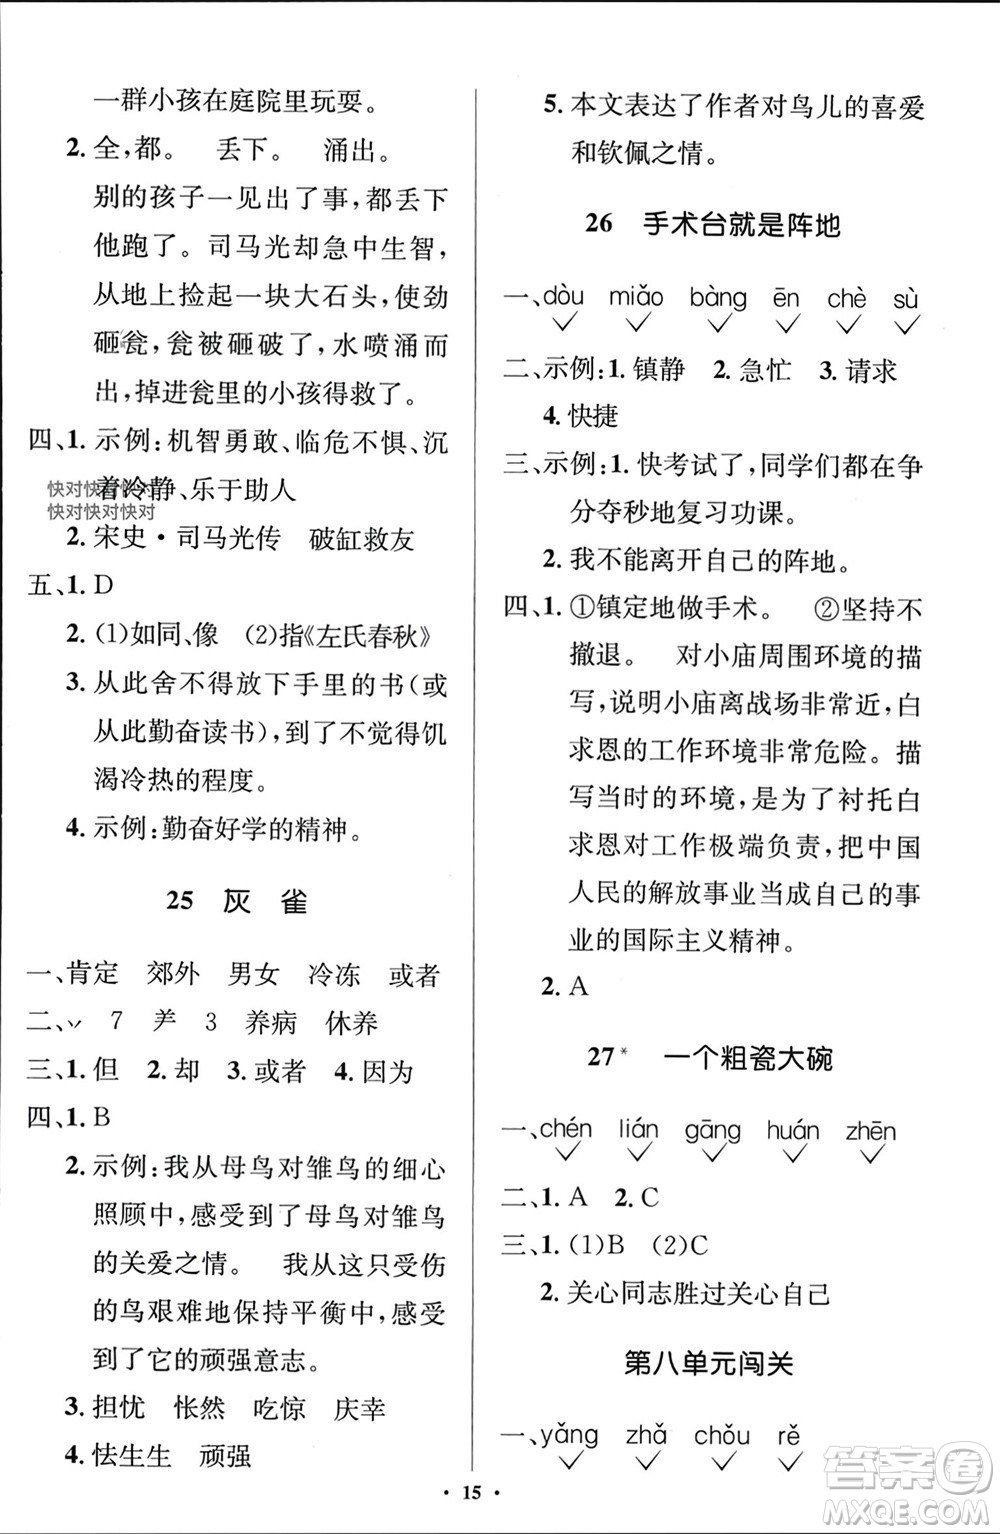 一群小孩在庭院里玩耍。
2. 全,都。 丢下。 涌出。
别的孩子一见出了事,都丢下
他跑了。司马光却急中生智,
从地上捡起一块大石头,使劲
砸瓮,瓮被砸破了,水喷涌而
出,掉进瓮里的小孩得救了。
四、1. 示例:机智勇敢、临危不惧、沉
着冷静、乐于助人
快对快对快对
快对快对快对
2. 宋史·司马光传 破缸救友
五、1. D
2. (1)如同、像 (2)指《左氏春秋》
3. 从此舍不得放下手里的书(或
从此勤奋读书),到了不觉得饥
渴冷热的程度。
4. 示例:勤奋好学的精神。
25 灰 雀
一、肯定 郊外 男女 冷冻 或者
二、 7 3 养病 休养
三、1. 但 2. 却 3. 或者 4. 因为
四、1. B
2. 示例:我从母鸟对雏鸟的细心
照顾中,感受到了母鸟对雏鸟
的关爱之情。 我从这只受伤
的鸟艰难地保持平衡中,感受
到了它的顽强意志。
3. 担忧 怅然 吃惊 庆幸
4. 怯生生 顽强
5. 本文表达了作者对鸟儿的喜爱
和钦佩之情。
26 手术台就是阵地
一、dòu miǎo bàng ēn chè sù
二、示例:1. 镇静 2. 急忙 3. 请求
4. 快捷
三、示例:1. 快考试了,同学们都在争
分夺秒地复习功课。
2. 我不能离开自己的阵地。
四、1. ①镇定地做手术。 ②坚持不
撤退。 对小庙周围环境的描
写,说明小庙离战场非常近,白
求恩的工作环境非常危险。描
写当时的环境,是为了衬托白
求恩对工作极端负责,把中国
人民的解放事业当成自己的事
业的国际主义精神。
2. A
27* 一个粗瓷大碗
一、chén lián gāng huán zhēn
二、1. A 2. C
三、1. (1)B (2)C
2. 关心同志胜过关心自己
第八单元闯关
一、yǎng zhǎ chǒu rě
· 15 ·
答案圈
MXQE.COM